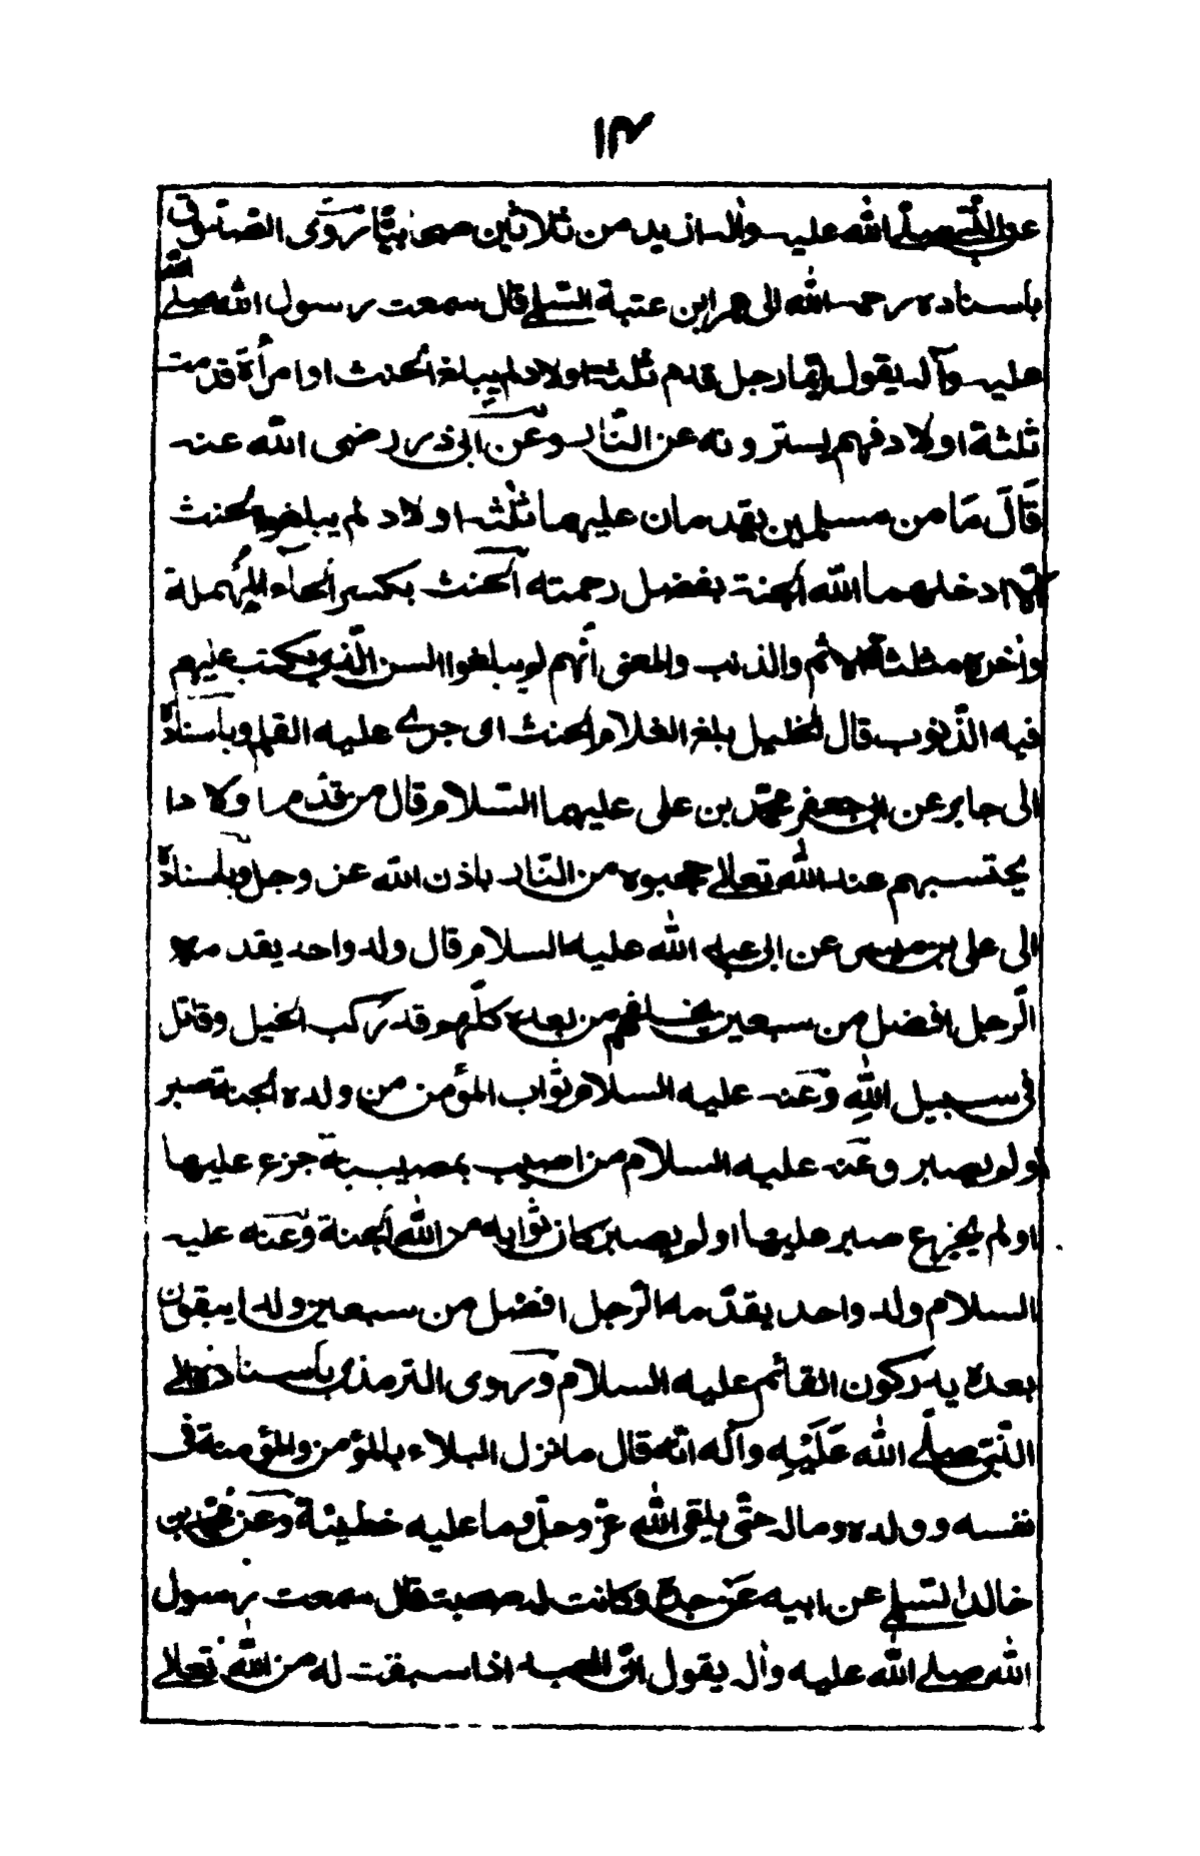 ١٣
عن النبي صلى الله عليه وآله ازيد من ثلاثين صحابيًّا روى الصدوق
باسناده رحمه الله الى عمرو ابن عتبة السلمي قال سمعت رسول الله صلى الله
عليه وآله يقول ايّما رجل قدم ثلثة اولاد لم يبلغوا الحنث او امرأة قدمت
ثلثة اولاد فهم يسترونه عن النّار وعن ابى ذر رضى الله عنه
قَالَ مَا من مسلمين يقدمان عليهما ثلثة اولاد لم يبلغوا الحنث
الا ادخلهما الله الجنة بفضل رحمته الحنث بكسر الحآء المهملة
وآخره مثلثة الاثم والذنب والمعنى أنّهم لم يبلغوا السن الّذى يكتب عليهم
فيه الذّنوب قال الخليل بلغ الغلام الحنث اى جرى عليه القلم وباسناده
الى جابر عن ابى جعفر محمّد بن على عليهما السّلام قال من قدّم اولادا
يحتسبهم عند الله تعالى حجبوه من النّار باذن الله عز وجل وباسناده
الى على بن ميسر عن ابى عبد الله عليه السلام قال ولد واحد يقدمه
الرّجل افضل من سبعين يخلفهم من بعده كلّهم قد ركب الخيل وقاتل
فى سبيل اللهِ وَعَنه عليه السلام ثواب المؤمن من ولده الجنة صبر
اولم يصبر وعَنه عليه السلام من اصيب بمصيبة جزع عليها
اولم يجزع صبر عليها اولم يصبر كان ثوابه من الله الجنة وَعَنه عليه
السلام ولد واحد يقدّمه الرّجل افضل من سبعين ولدا يبقون
بعده يدركون القائم عليه السلام ورَوى الترمذى باسناده الى
النّبى صلّى الله عَلَيْهِ وآله انّه قال ما نزل البلاء بالمؤمن والمؤمنة فى
نفسه وولده وماله حتّى يلقى الله عزّ وجلّ وما عليه خطيئة وعن محمّد بن
خالد السلمى عن ابيه عَن جده وكانت له صحبة قال سمعت رسول
الله صلى الله عليه وآله يقول انّ العبد اذا سبقت له من الله تعالى